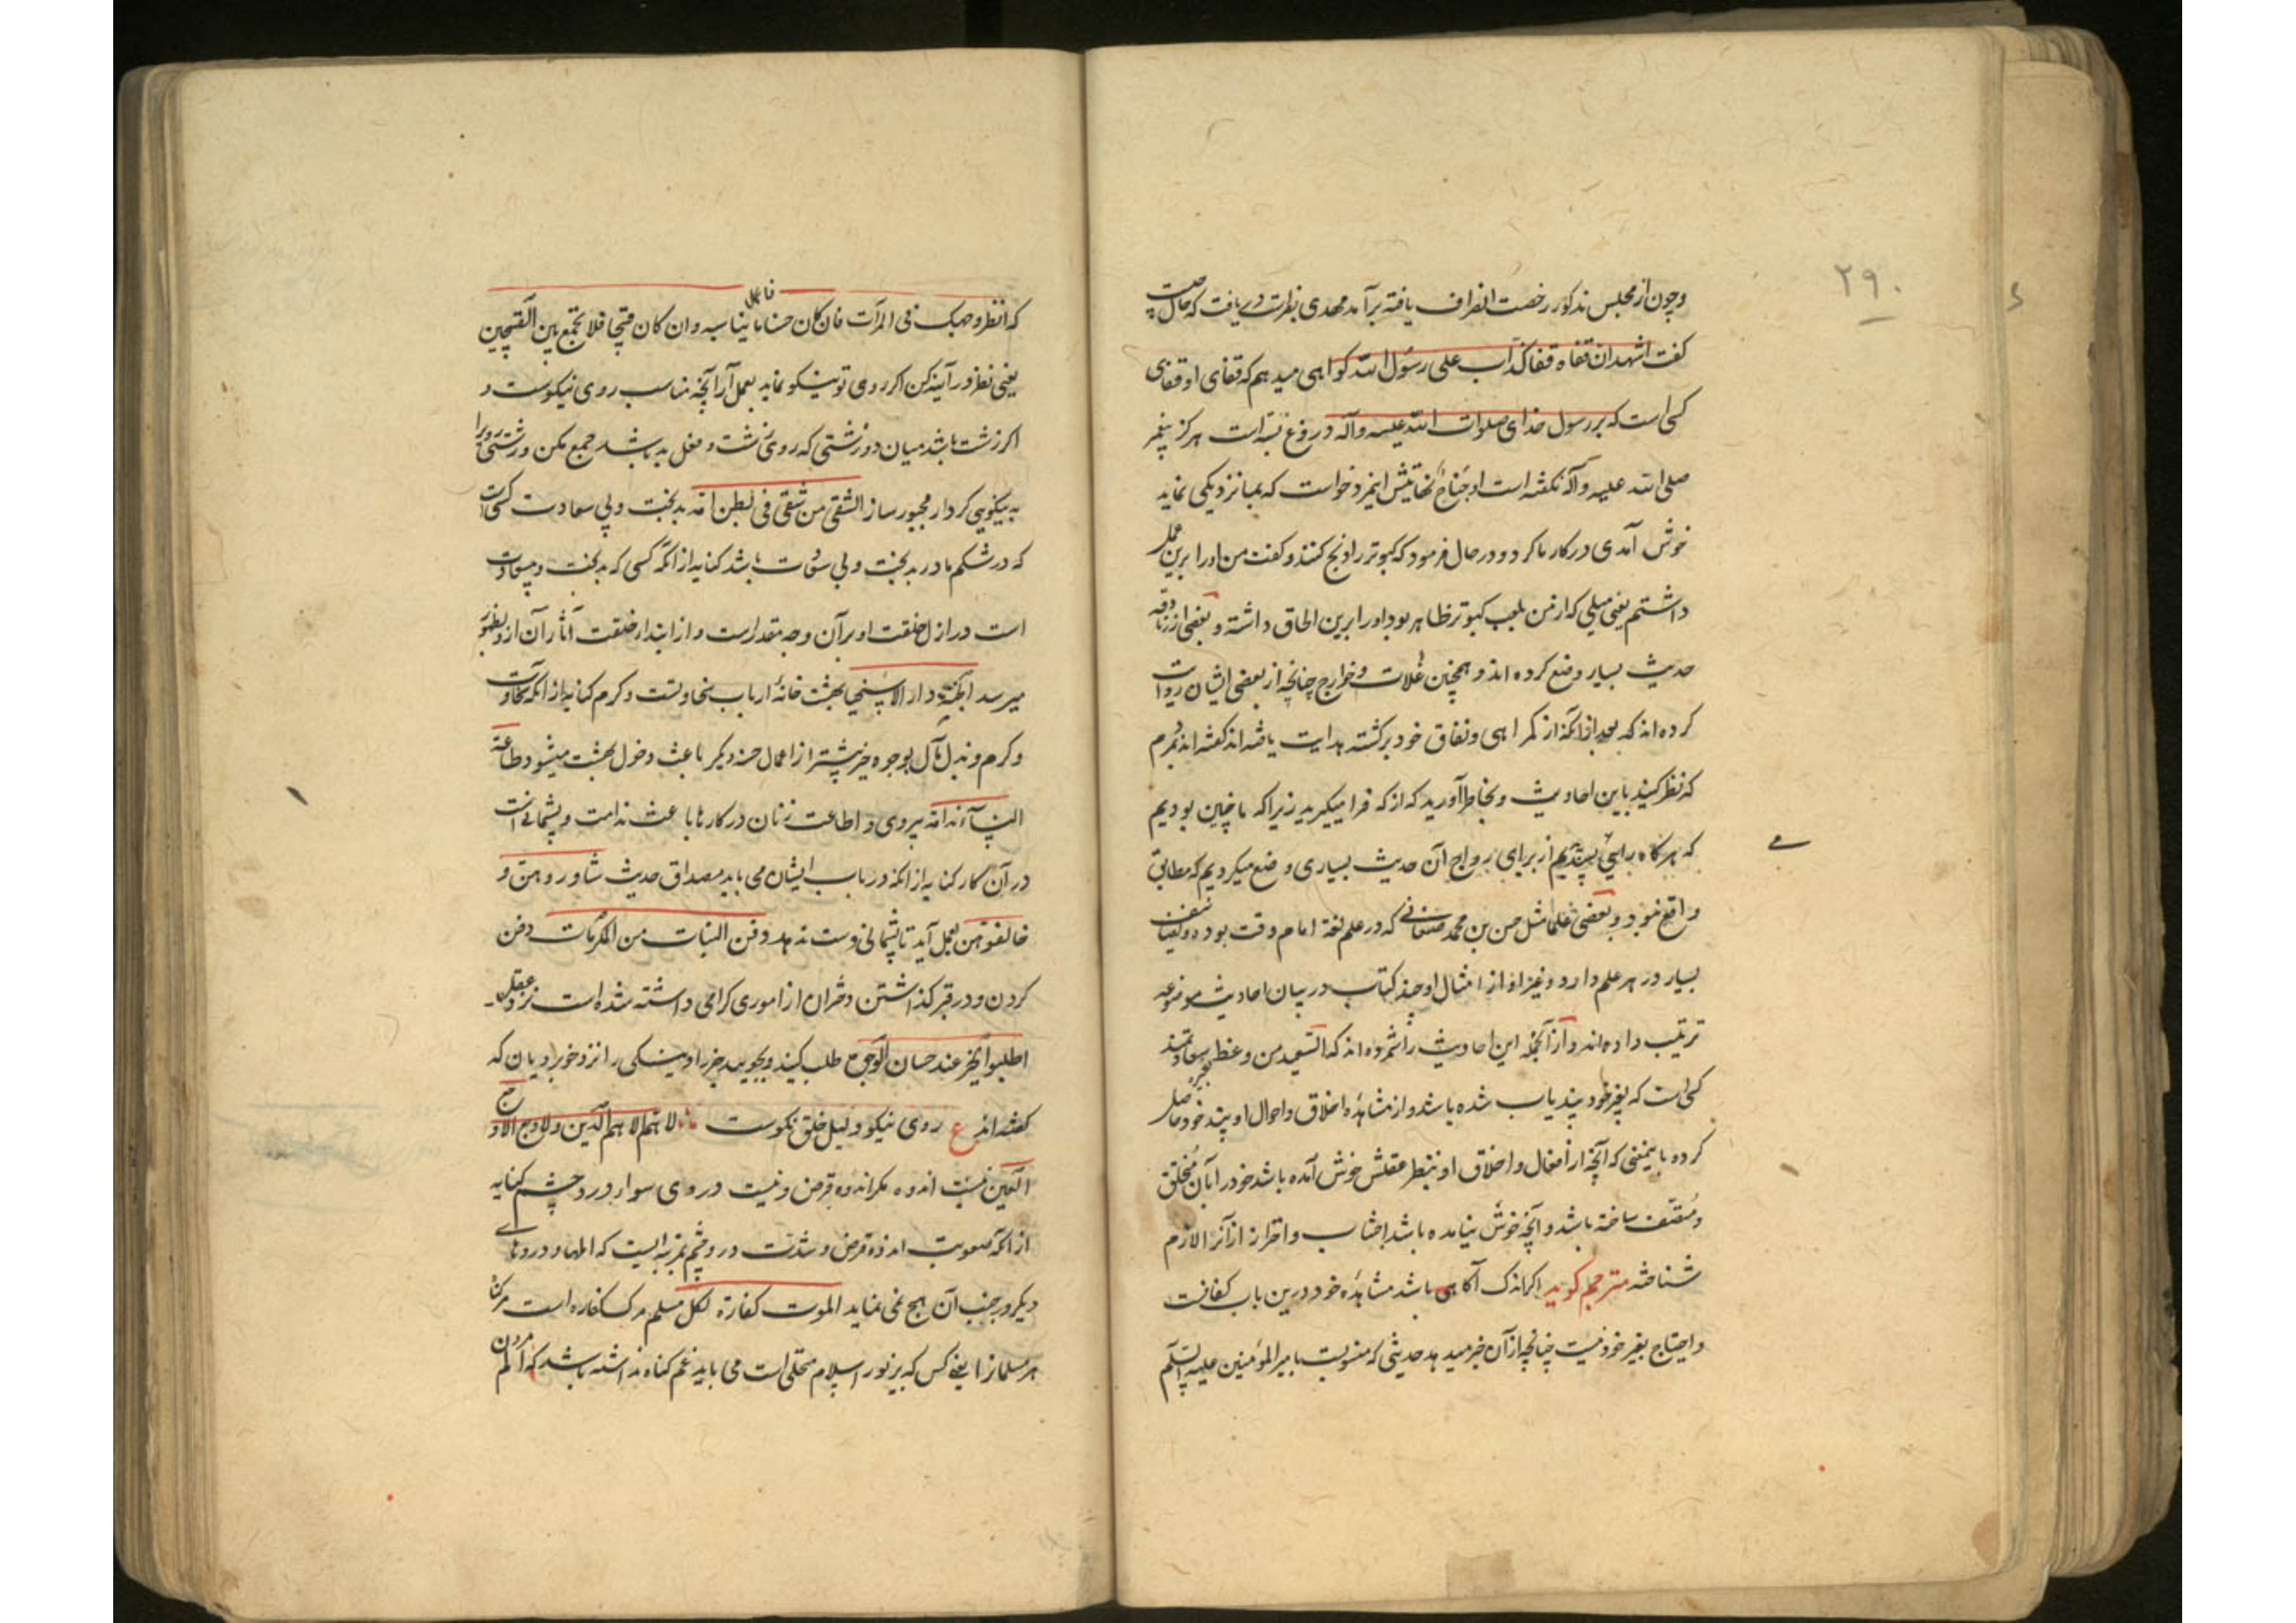 ۲۹۰
وچون از مجلس مذکور رخصت انصراف یافته برآمد مهدی بفراست دریافت که حال چیست
کفت اشهد ان قفاه قفا کذاب علی رسول الله کواهی میدهم که قفای او قفای
کسی است که بر رسول خدای صلوات الله علیه وآله دروغ بسته است هرکز پیغمبر
صلی الله علیه وآله نکفته است او جناح نهایتش اینمرد خواست که بما نزدیکی نماید
خوش آمدی در کار ما کرد و در حال فرمود که کبوتر را ذبح کنند و کفت من او را برین عمل
داشتم یعنی میلی که از من بلعب کبوتر ظاهر بود او را برین الحاق داشته و بعضی از زنادقه
حدیث بسیار وضع کرده اند و همچنین غلات و خوارج چنانچه از بعضی ایشان روایت
کرده اند که بعد از انکه از کمراهی ونفاق خود برکشته هدایت یافته اند کفته اند بمردم
که نظر کنید باین احادیث وبخاطر آورید که از که فرا میکیرید زیرا که ما چنین بودیم
که هرکاه رایی پسندیدیم از برای رواج آن حدیث بسیاری وضع میکردیم که مطابق
واقع نبود و بعضی علما مثل حسن بن محمد صنعانی که در علم لغة امام وقت بوده وتصانیف
بسیار در هر علم دارد وغیر او از امثال او چند کتاب در بیان احادیث موضوعه
ترتیب داده اند و از آنجمله این احادیث را شمرده اند که السعید من وعظ بغیره سعادتمند
کسی است که بغیر خود پند یاب شده باشد و از مشاهدهٔ اخلاق واحوال او پند خود حاصل
کرده باینمعنی که آنچه از افعال واخلاق او بنظر عقلش خوش آمده باشد خود را بآن متخلق
ومتصف ساخته باشد و آنچه خوش نیامده باشد اجتناب واحتراز از آنرا لازم
شناخته مترجم کوید اکر اندک آکاهی باشد مشاهدهٔ خود درین باب کفافست
واحتیاج بغیر خود نیست چنانچه از آن خبر میدهد حدیثی که منسوبست بامیر المؤمنین علیه السلم
که انظر وجهک فی المرآت فان کان حسنا فاعمل ما یناسبه وان کان قبیحا فلا تجمع بین القبیحین
یعنی نظر در آینه کن اکر روی تو نیکو نماید بعمل آر آنچه مناسب روی نیکوست و
اکر زشت باشد میان دو زشتی که روی زشت و فعل بد باشد جمع مکن و زشتی رو را
به نیکویی کردار مجبور ساز الشقی من شقی فی بطن امه بدبخت وبی سعادت کسی است
که در شکم مادر بدبخت وبی سعادت باشد کنایه از انکه کسی که بدبخت و بیسعادت
است در ازل خلقت او بر آن وجه مقدر است و از ابتداء خلقت آثار آن ازو بظهور
میرسد الجنة دار الاسخیا بهشت خانهٔ ارباب سخاوتست وکرم کنایه از انکه سخاوت
وکرم وبذل مال بوجوه خیر پیشتر از اعمال حسنه دیکر باعث دخول بهشت میشود طاعة
النسآء ندامة پیروی و اطاعت زنان در کارها باعث ندامت وپشیمانی است
در آن کار کنایه از انکه در باب ایشان می باید مصداق حدیث شاوروهن و
خالفوهن بعمل آید تا پشیمانی دست ندهد دفن البنات من المکرمات دفن
کردن و در قبر کذاشتن دختران از اموری کرامی داشته شده است نزد عقل
اطلبوا الخیر عند حسان الوجوه طلب کنید وبجویید خیر و نیکی را نزد خوبرویان که
کفته اند ع روی نیکو دلیل خلق نکوست لا هم الا هم الدین ولا وجع الا وجع
العین نیست اندوه مکر اندوه قرض ونیست دردی سوای درد چشم کنایه
از انکه صعوبت اندوه قرض و شدت درد چشم بمرتبه ایست که المها و دردهای
دیکر در جنب آن هیچ نمی نماید الموت کفارة لکل مسلم مرک کفاره است مر کناه
هر مسلمان را یعنی کس که بزیور اسلام متحلی است می باید غم کناه نداشته باشد که الم مردن